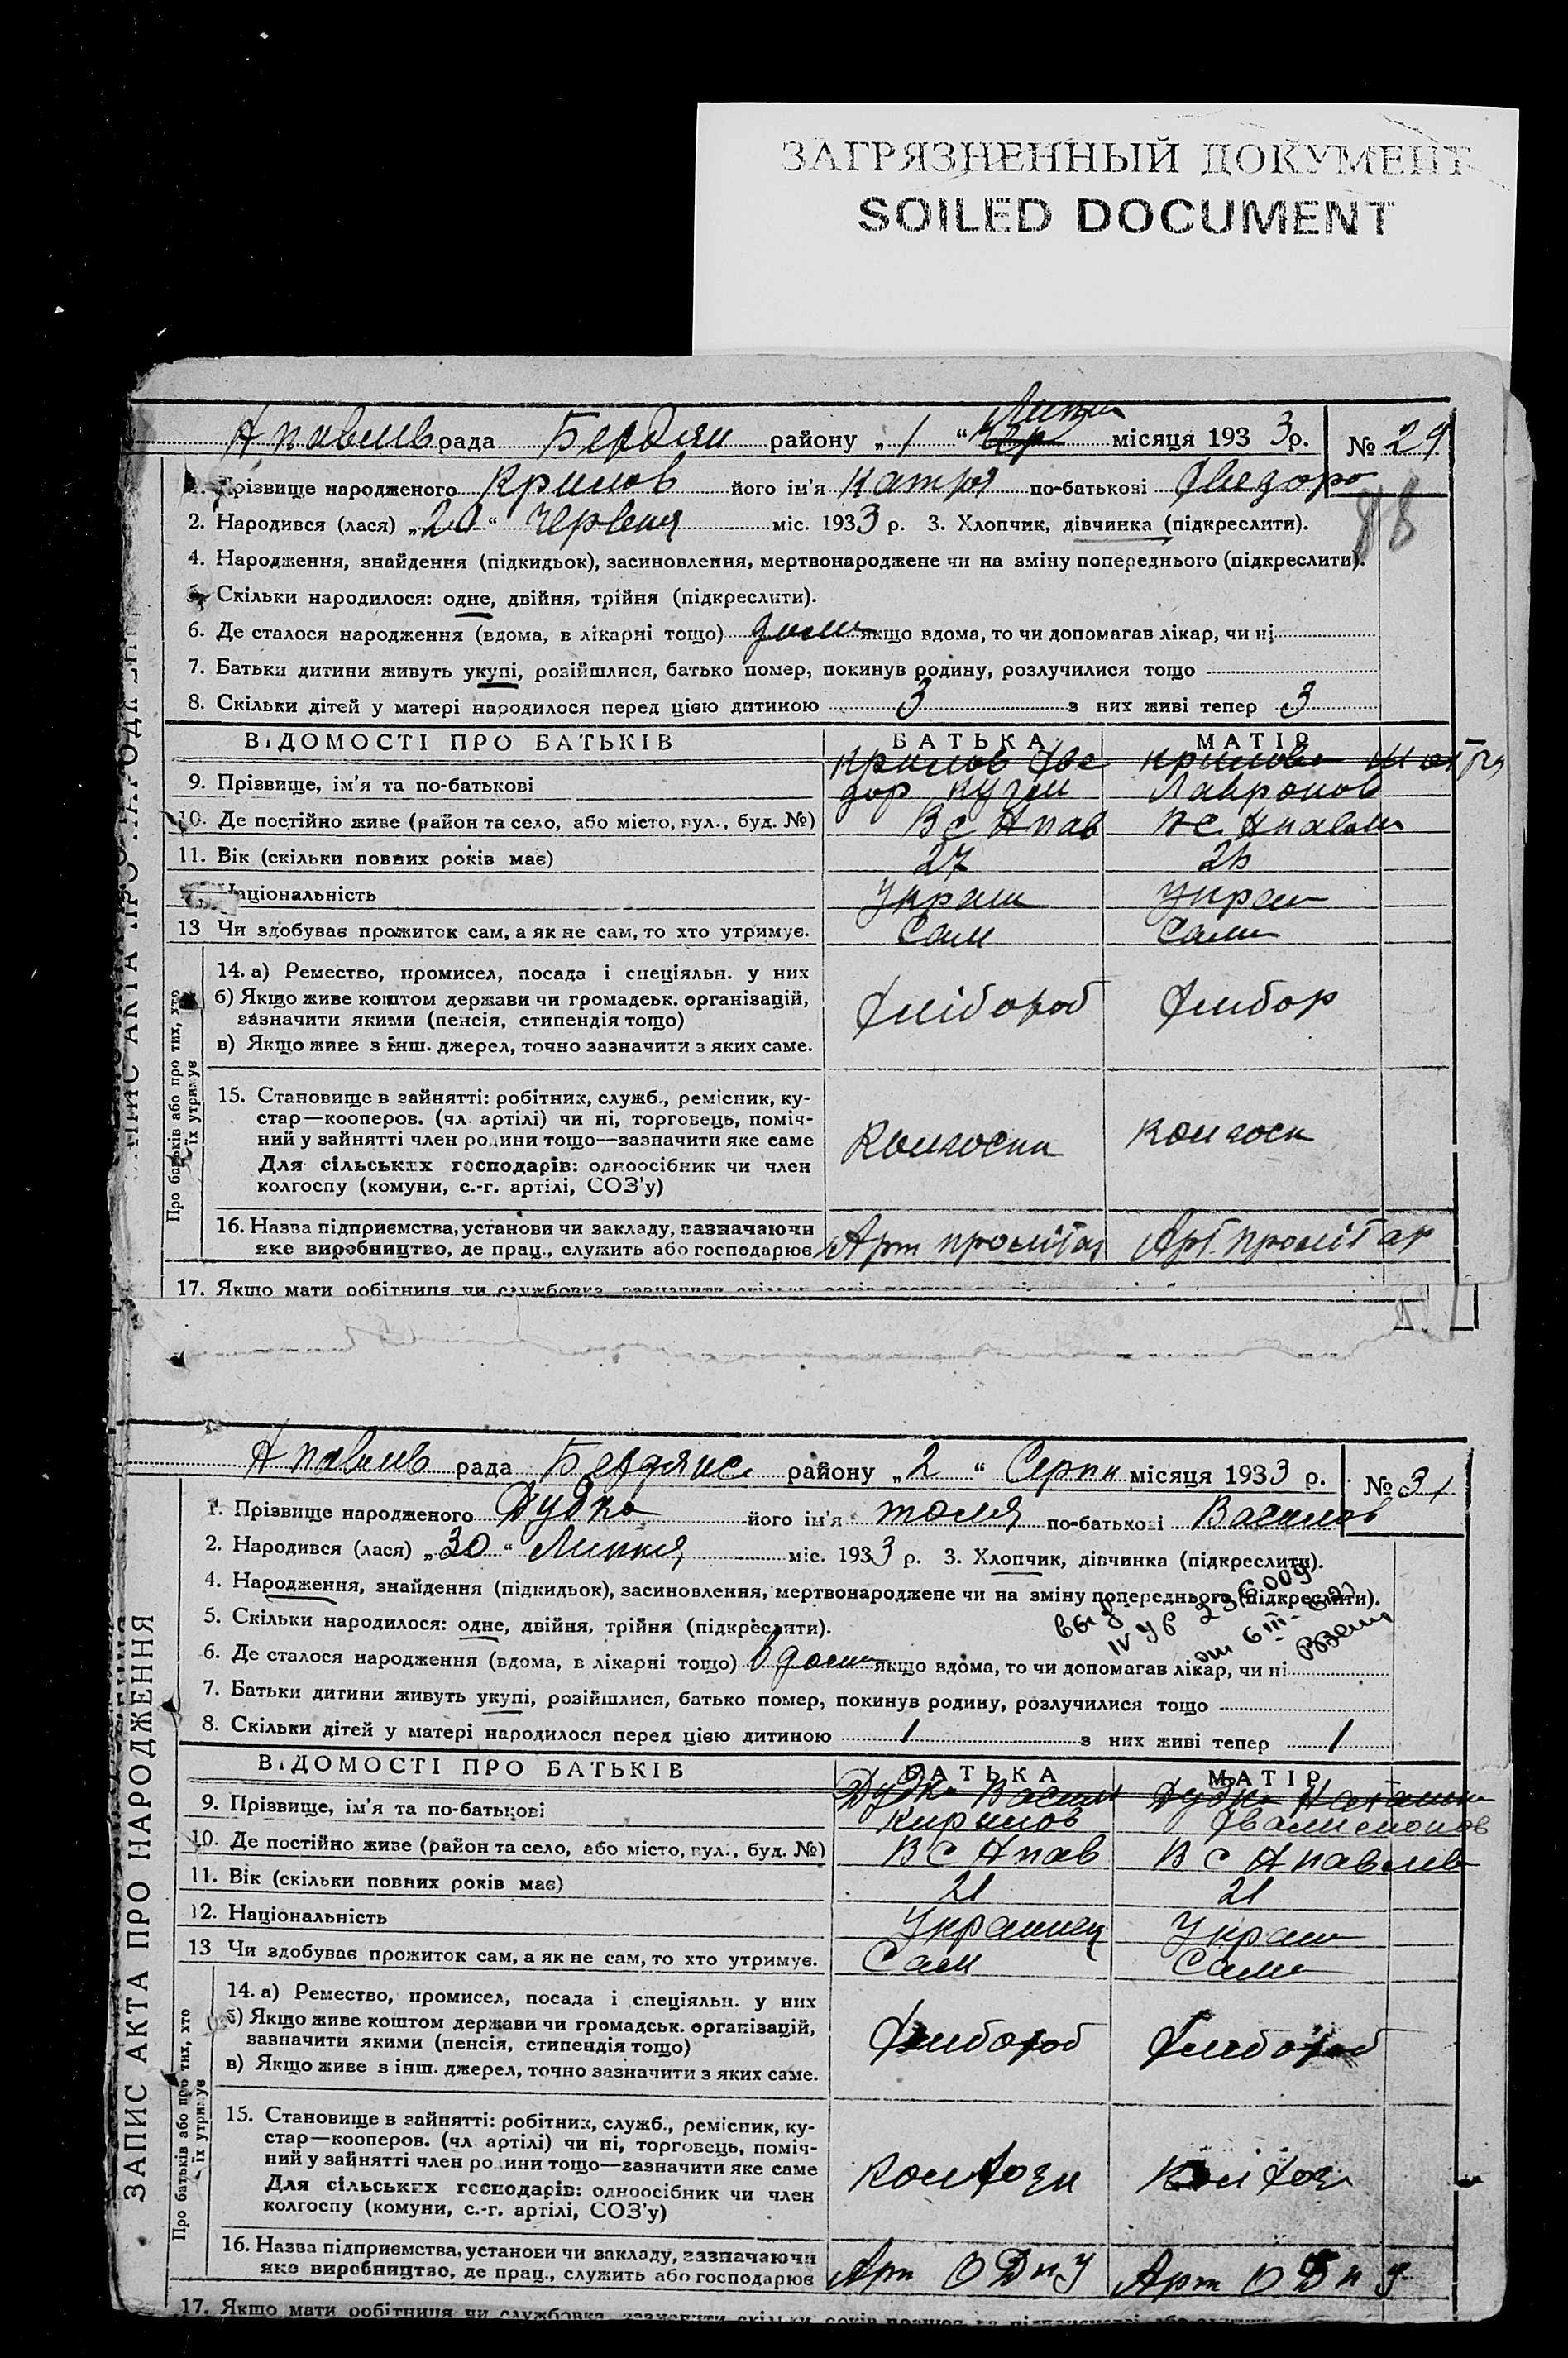 ЗАГРЯЗНЕННЫЙ ДОКУМЕНТ
SOILED DOCUMENT
рада району „1“ місяця 1933 р. № 29
Прізвище народженого Крилов його ім'я Катря по-батькові Фведоро
88
2. Народився (лася) „20“ Червня міс. 1933 р. 3. Хлопчик, дівчинка (підкреслити).
4. Народження, знайдення (підкидьок), засиновлення, мертвонароджене чи на зміну попереднього (підкреслити).
5. Скільки народилося: одне, двійня, трійня (підкреслити).
6. Де сталося народження (вдома, в лікарні тощо) дома якщо вдома, то чи допомагав лікар, чи ні
7. Батьки дитини живуть укупі, розійшлися, батько помер, покинув родину, розлучилися тощо
8. Скільки дітей у матері народилося перед цією дитиною 3 з них живі тепер 3
ВІДОМОСТІ ПРО БАТЬКІВ БАТЬКА МАТІР
Крилов Фве Крилова
9. Прізвище, ім'я та по-батькові дор Кузм Лавронов
10. Де постійно живе (район та село, або місто, вул., буд. №) В с Апав
11. Вік (скільки повних років має) 27
Національність Украин Украи
13 Чи здобуває прожиток сам, а як не сам, то хто утримує. Сам Сама
Про батьків або про тих, хто їх утримує
14. а) Ремество, промисел, посада і спеціяльн. у них
б) Якщо живе коштом держави чи громадськ. організацій,
зазначити якими (пенсія, стипендія тощо)
в) Якщо живе з інш. джерел, точно зазначити з яких саме.
15. Становище в зайнятті: робітник, служб., ремісник, ку-
стар—кооперов. (чл. артілі) чи ні, торговець, поміч-
ний у зайнятті член родини тощо—зазначити яке саме
Для сільських господарів: одноосібник чи член
колгоспу (комуни, с.-г. артілі, СОЗ'у)
16. Назва підприємства, установи чи закладу, зазначаючи
яке виробництво, де прац., служить або господарює Арт пролітар Арт. пролітар
17. Якщо мати робітниця чи службовка, зазначити скільки
рада району „2“ Серпн місяця 1933 р. № 31
1. Прізвище народженого Дудко його ім'я толя по-батькові Василов
2. Народився (лася) „30“ Липня міс. 1933 р. 3. Хлопчик, дівчинка (підкреслити).
4. Народження, знайдення (підкидьок), засиновлення, мертвонароджене чи на зміну попереднього (підкреслити).
5. Скільки народилося: одне, двійня, трійня (підкреслити).
6. Де сталося народження (вдома, в лікарні тощо) В дома якщо вдома, то чи допомагав лікар, чи ні
7. Батьки дитини живуть укупі, розійшлися, батько помер, покинув родину, розлучилися тощо
8. Скільки дітей у матері народилося перед цією дитиною 1 з них живі тепер 1
ВІДОМОСТІ ПРО БАТЬКІВ БАТЬКА МАТІР
Дудко Васил Дудко
9. Прізвище, ім'я та по-батькові Кирилов
10. Де постійно живе (район та село, або місто, вул., буд. №) В с Апав В с
11. Вік (скільки повних років має) 21 21
12. Національність Украинец Украи
13 Чи здобуває прожиток сам, а як не сам, то хто утримує. Сам Сама
ЗАПИС АКТА ПРО НАРОДЖЕННЯ
Про батьків або про тих, хто їх утримує
14. а) Ремество, промисел, посада і спеціяльн. у них
б) Якщо живе коштом держави чи громадськ. організацій,
зазначити якими (пенсія, стипендія тощо)
в) Якщо живе з інш. джерел, точно зазначити з яких саме.
15. Становище в зайнятті: робітник, служб., ремісник, ку-
стар—кооперов. (чл. артілі) чи ні, торговець, поміч-
ний у зайнятті член родини тощо—зазначити яке саме
Для сільських господарів: одноосібник чи член
колгоспу (комуни, с.-г. артілі, СОЗ'у)
16. Назва підприємства, установи чи закладу, зазначаючи
яке виробництво, де прац., служить або господарює Арт ОДПУ Арт ОДПУ
17. Якщо мати робітниця чи службовка, зазначити скільки років